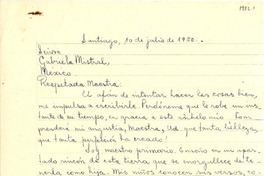 1950?
Santiago, 10 de julio de 1950.
Señora
Gabriela Mistral,
México.
Respetada Maestra:
El afán de intentar hacer las cosas bien,
me impulsa a escribirle. Perdóneme que le robe un ins-
tante de su tiempo, en gracia a este anhelo mío. Com-
prenderá mi angustia, Maestra, Ud. que tanta belleza,
que tanta perfección ha creado!
Soy maestro primario. Enseño en un apar-
tado rincón de esta tierra que se enorgullece de te-
nerla como hija. Mis niños conocen sus versos, co-